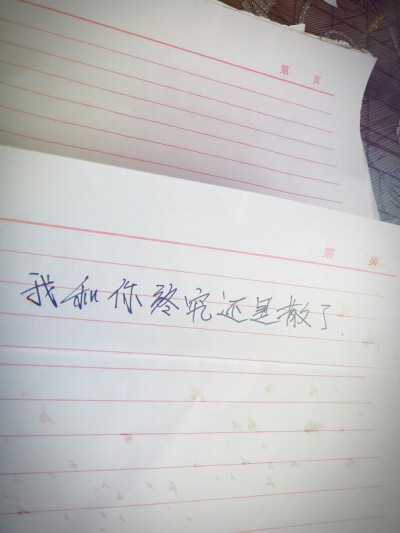 第 页
第 页
我和你终究还是散了.